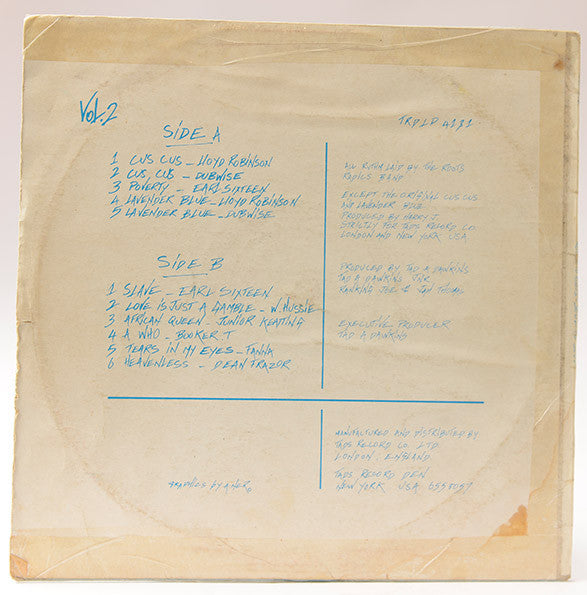 Vol.2
TRDLP 4131
SIDE A
1 CUS CUS - LLOYD ROBINSON
2 CUS, CUS - DUBWISE
3 POVERTY - EARL SIXTEEN
4 LAVENDER BLUE - LLOYD ROBINSON
5 LAVENDER BLUE - DUBWISE
SIDE B
1 SLAVE - EARL SIXTEEN
2 LOVE IS JUST A GAMBLE - W HUSSIE
3 AFRICAN QUEEN - JUNIOR KEATING
4 A WHO - BOOKER T
5 TEARS IN MY EYES - FANNA
6 HEAVENLESS - DEAN FRAZOR
ALL RYTHM LAID BY THE ROOTS
RADICS BAND
EXCEPT THE ORIGINAL CUS CUS
AND LAVENDER BLUE
PRODUCED BY HARRY J.
STRICTLY FOR TADS RECORD CO.
LONDON AND NEW YORK USA
PRODUCED BY TAD A DAWKINS
TAD A DAWKINS JNR.
RANKING JOE & IAN THOMAS
EXECUTIVE PRODUCER
TAD A DAWKINS
MANUFACTURED AND DISTRIBUTED BY
TADS RECORD CO. LTD.
LONDON, ENGLAND
TADS RECORD DEN
NEW YORK USA
GRAPHICS BY